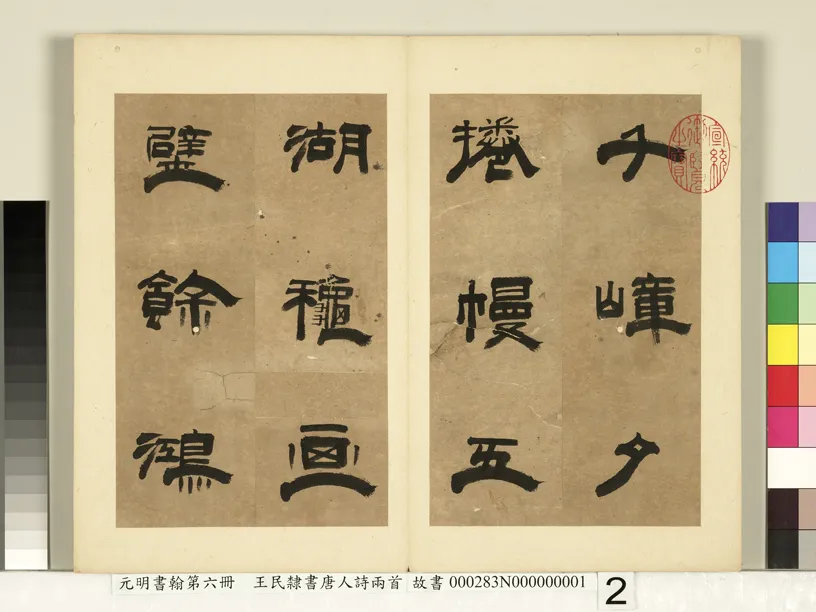 千嶂夕
捲幔五
湖龝画
壁餘鴻
宣統御覽之寶
元明書翰第六冊 王民隸書唐人詩兩首 故書 000283N000000001
2